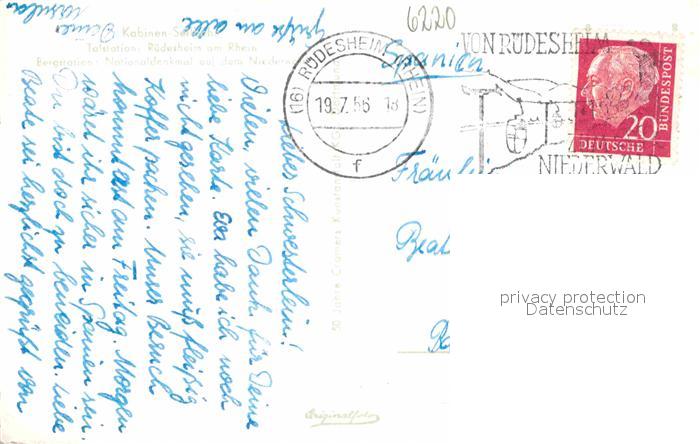 6220
Kabinen-Seilbahn
Talstation: Rüdesheim am Rhein
Bergstation: Nationaldenkmal auf dem Niederwald
(16) RÜDESHEIM (RHEIN)
19.7.56 - 18
f
VON RÜDESHEIM
NIEDERWALD
20
DEUTSCHE
BUNDESPOST
Spanien
Fräulein
Beat
liebes Schwesterlein!
Vielen, vielen Dank für Deine
liebe Karte. Eva habe ich noch
nicht gesehen, sie muß fleißig
Koffer packen. Unser Besuch
kommt erst am Freitag. Morgen
wird ihr sicher in Spanien sei.
Du bist doch zu beneiden. Liebe
Beate sei herzlichst gegrüßt von
Deiner
Grüße an alle
50 Jahre Cramers Kunstanstalt
Originalfoto
privacy protection
Datenschutz